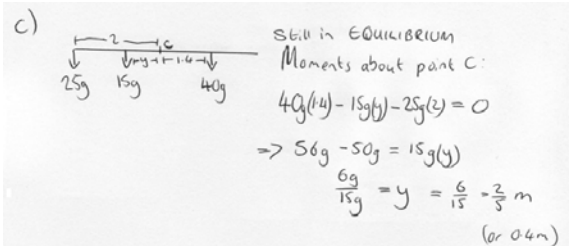 c)
2
C
y
1.4
25g
15g
40g
Still in EQUILIBRIUM
Moments about point C:
40g(1.4) - 15g(y) - 25g(2) = 0
=> 56g - 50g = 15g(y)
6g/15g = y = 6/15 = 2/5 m
(or 0.4m)